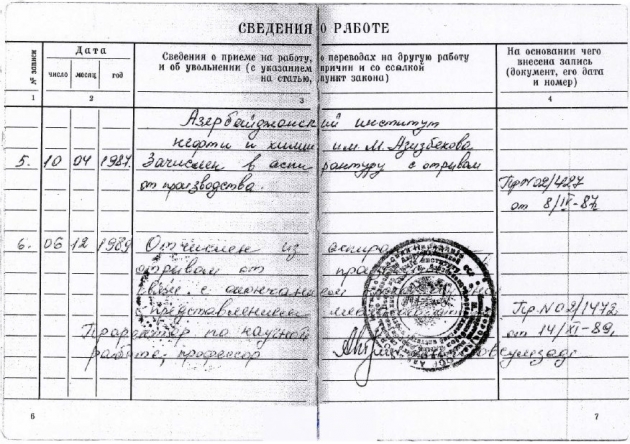 СВЕДЕНИЯ О РАБОТЕ
№ записи
Дата
число месяц год
Сведения о приеме на работу, о переводах на другую работу
и об увольнении (с указанием причин и со ссылкой
на статью, пункт закона)
На основании чего
внесена запись
(документ, его дата
и номер)
1 2 3 4
Азербайджанский институт
нефти и химии им. М. Азизбекова
5. 10 04 1987. Зачислен в аспирантуру с отрывом
от производства.
Пр N02/427
от 8/IV-87.
6. 06 12 1989 Отчислен из
отрывом от
с окончанием
представлением
Пр. N02/1472
от 14/XI-89.
Проректор по научной
работе, профессор
6 7